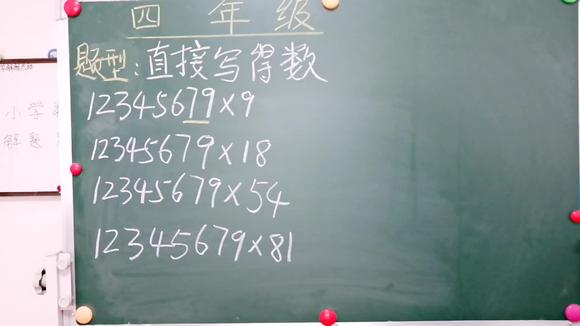 四 年 级
题型:直接写得数
12345679×9
12345679×18
12345679×54
12345679×81
小学
解题